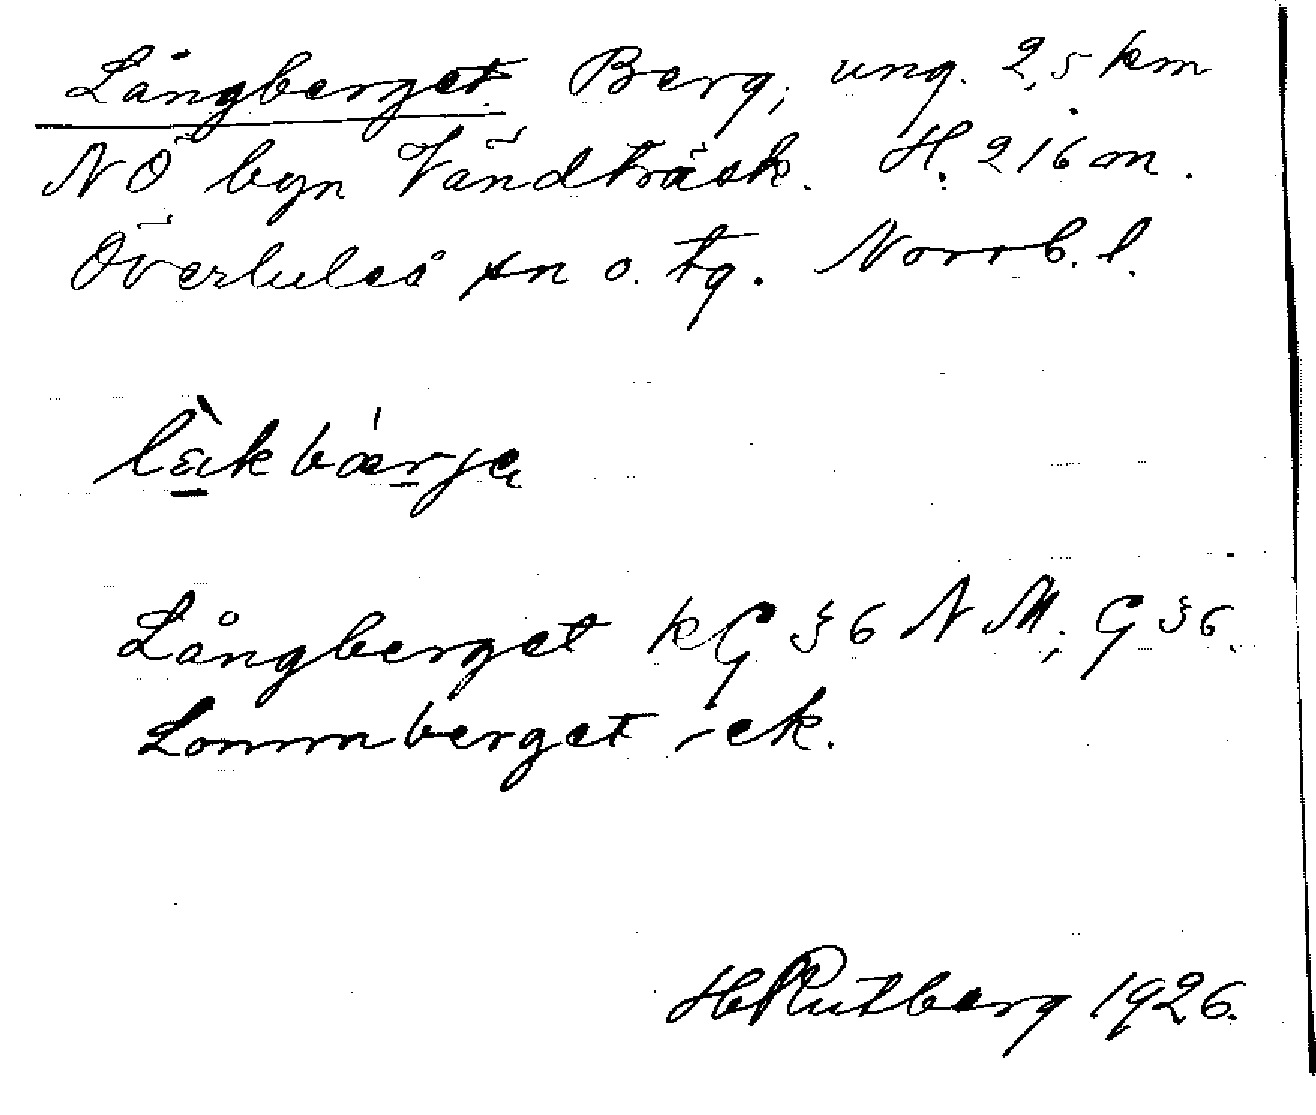 Långberget Berg, ung. 2,5 km
NÖ byn Vändträsk. H. 216 m.
Överluleå sn o. tg. Norrb. l.
Långberget kG 36 N M; G 36.
Lommberget -ek.
HRutberg 1926.